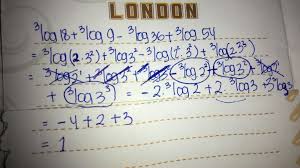 LONDON
³log 18 + ³log 9 - ³log 36 + ³log 54
= ³log(2·3²) + ³log 3² - ³log(2²·3²) + ³log(2·3³)
= ³log 2 + ³log 3² + ³log 3² - ³log 2² - ³log 3² + ³log 2
+ ³log 3³ = -2 ³log 2 + 2 ³log 3 + 3 ³log 3
= -4 + 2 + 3
= 1